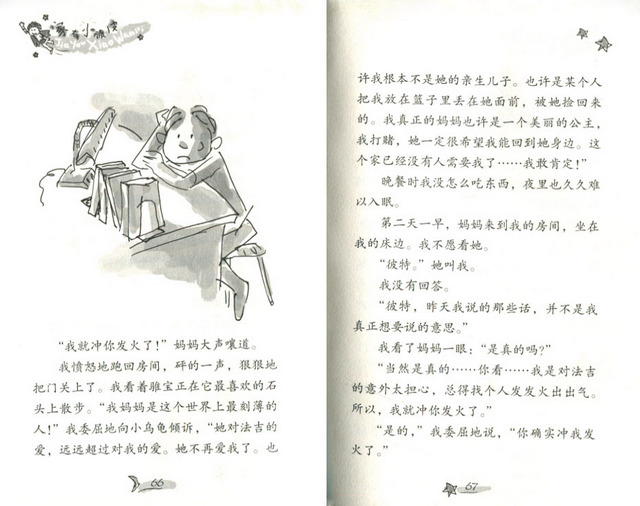 家有小顽皮
Jia You Xiao Wanpi
“我就冲你发火了!”妈妈大声嚷道。
我愤怒地跑回房间，砰的一声，狠狠地
把门关上了。我看着雅宝正在它最喜欢的石
头上散步。“我妈妈是这个世界上最刻薄的
人!”我委屈地向小乌龟倾诉，“她对法吉的
爱，远远超过对我的爱。她不再爱我了。也
66
许我根本不是她的亲生儿子。也许是某个人
把我放在篮子里丢在她面前，被她捡回来
的。我真正的妈妈也许是一个美丽的公主，
我打赌，她一定很希望我能回到她身边。这
个家已经没有人需要我了……我敢肯定!”
晚餐时我没怎么吃东西，夜里也久久难
以入眠。
第二天一早，妈妈来到我的房间，坐在
我的床边。我不愿看她。
“彼特。”她叫我。
我没有回答。
“彼特，昨天我说的那些话，并不是我
真正想要说的意思。”
我看了妈妈一眼：“是真的吗?”
“当然是真的……你看……我是对法吉
的意外太担心，总得找个人发发火出出气。
所以，我就冲你发火了。”
“是的，”我委屈地说，“你确实冲我发
火了。”
67